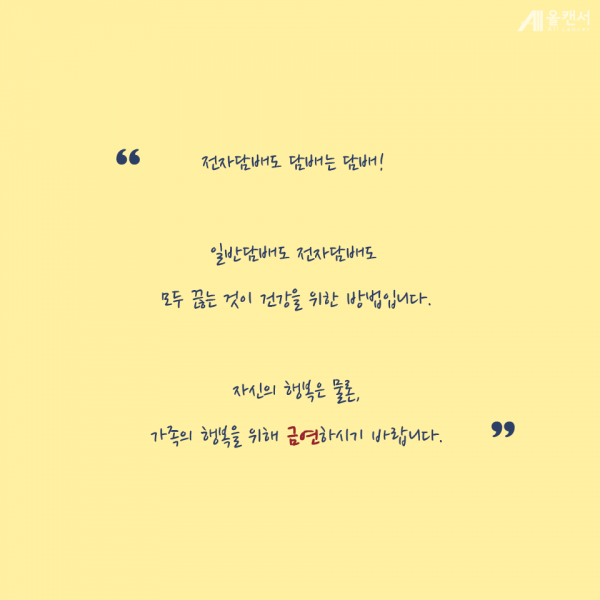 올캔서
“ 전자담배도 담배는 담배!
일반담배도 전자담배도
모두 끊는 것이 건강을 위한 방법입니다.
자신의 행복은 물론,
가족의 행복을 위해 금연하시기 바랍니다. ”